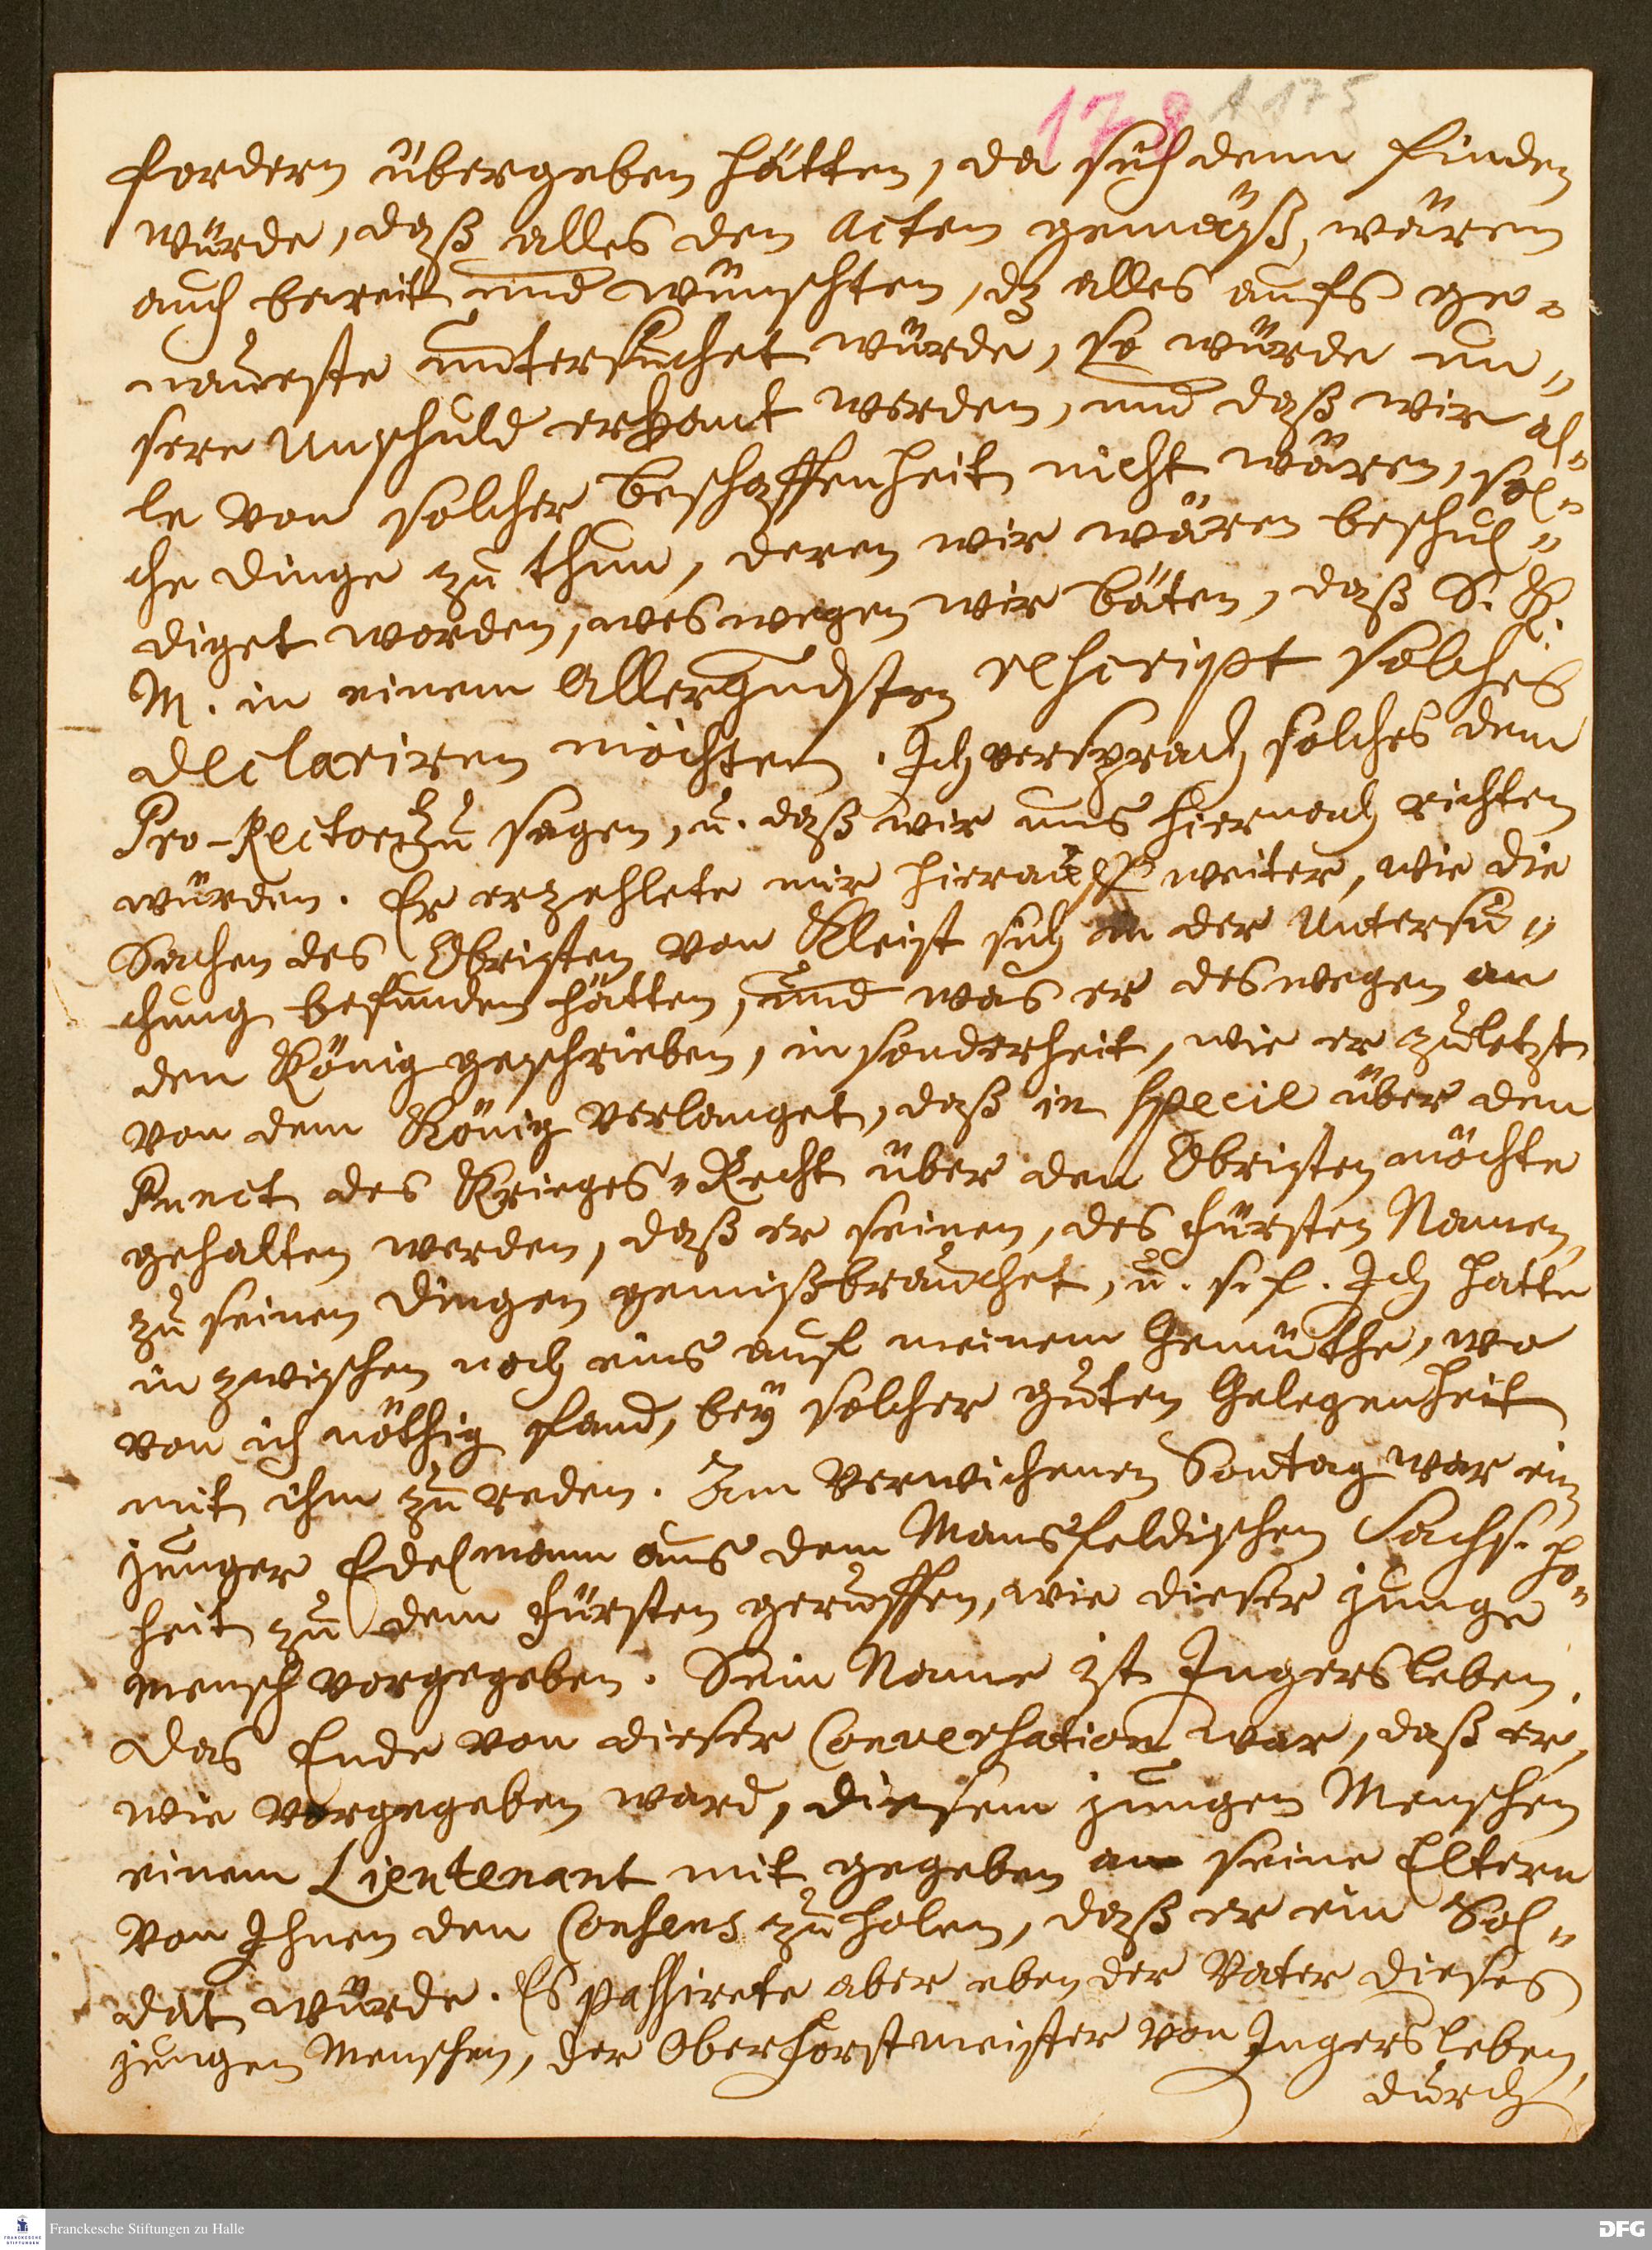 178 A 175
fordern übergeben hätten, da sich denn finden
würde, daß alles den Acten gemäß, wären
auch bereit und wünschten, dz alles aufs ge-
naueste untersuchet würde, so würde un-
sere Unschuld erkant werden, und daß wir al-
le von solcher beschaffenheit nicht wären, sol-
che dinge zu thun, deren wir wären beschul-
diget worden, weswegen wir bäten, daß S. K.
M. in einem Allergndsten rescript solches
declariren möchten. Ich versprach solches dem
Pro-Rectori zu sagen, u. daß wir uns hiernach richten
würden. Er erzehlete mir hierauf weiter, wie die
Sachen des Obristen von Kleist sich in der Untersu-
chung befunden hätten, und was er deswegen an
den König geschrieben, insonderheit, wie er zuletzt
von dem König verlanget, daß in specie über den
Punct des Krieges-Recht über den Obristen möchte
gehalten werden, daß er seinen, des Fürsten Namen,
zu seinen Dingen gemißbrauchet, u. s. f. Ich hatte
in zwischen noch eins auf meinem Gemüthe, wo
von ich nöthig fand, bey solcher guten Gelegenheit
mit ihm zu reden. Am verwichenen Sontag war ein
junger Edelmann aus dem Mansfeldischen Sächs. Ho-
heit zu dem Fürsten geruffen, wie dieser junge
Mensch vorgegeben. Sein Name ist Ingersleben.
Das Ende von dieser Conversation war, daß er,
wie vorgegeben ward, diesem jungen Menschen
einem Lieutenant mit gegeben an seine Eltern
von Ihnen den Consens zu holen, daß er ein Sol-
dat würde. Es passirete aber eben der Vater dieses
jungen Menschen, der Oberforstmeister von Ingersleben,
durch
Franckesche Stiftungen zu Halle
FRANCKESCHE STIFTUNGEN
DFG